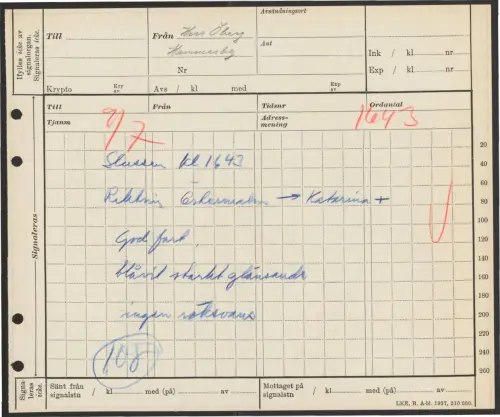 Användningsort
Hylles icke av signalorgan. Signaleras icke.
Till Från Herr Öberg
Ant
Hammarby
Ink / kl nr
Nr
Exp / kl nr
Krypto Exp nr Avs / kl med Exp nr
Till Från Tidsnr Ordantal
Tjanm Adress-mening
9/7 1643
20
Slussen kl 1643
40
60
Riktning Östermalm → Katarina +
80
100
God fart
120
140
blåvit starkt glänsande
160
180
ingen röksvans
200
220
108
240
260
Signaleras
Signaleras icke.
Sänt från signalstn / kl med (på) av
Mottaget på signalstn / kl med (på) av
LKE, B, A-M. 1937, 210 000.